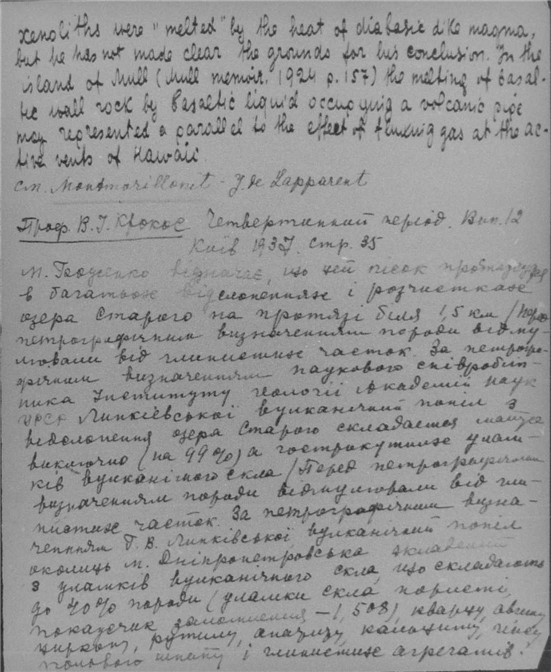 xenoliths were "melted" by the heat of diabasic dike magma,
but he has not made clear the grounds for his conclusion. In the
island of Mull (Mull memoir. 1924 p. 157) the melting of basal-
tic wall rock by basaltic liquid occupying a volcanic pipe
may represented a parallel to the effect of fluxing gas at the ac-
tive vents of Hawaii.
см. Montmorillonit - J de Lapparent
Проф. В. І. Крокос Четвертинний період. Вип. 12
Київ 1937. стр. 35
М. відзначає, що цей пісок
в багатьох відслоненнях і розчистках
озера Старого на протязі біля 1,5 км / Перед
петрографічним визначенням породи відму-
лювали від глинистих часток. За петрогра-
фічним визначенням наукового співробіт-
ника Інституту геології Академії наук
УРСР Липківської вулканічний попіл з
відслонення озера Старого складається майже
виключно (на 99%) з гострокутних улам-
ків вулканічного скла / Перед петрографічним
визначенням породи відмулювали від гли-
нистих часток. За петрографічним визна-
ченням Г. В. Липківської вулканічний попіл
околиць м. Дніпропетровська складений
з уламків вулканічного скла, що складають
до 40% породи (уламки скла пористі,
показчик заломлення – 1,508), кварцу, авгіту,
циркону, рутилу, апатиту, кальциту,
польового шпату і глинистих агрегатів.